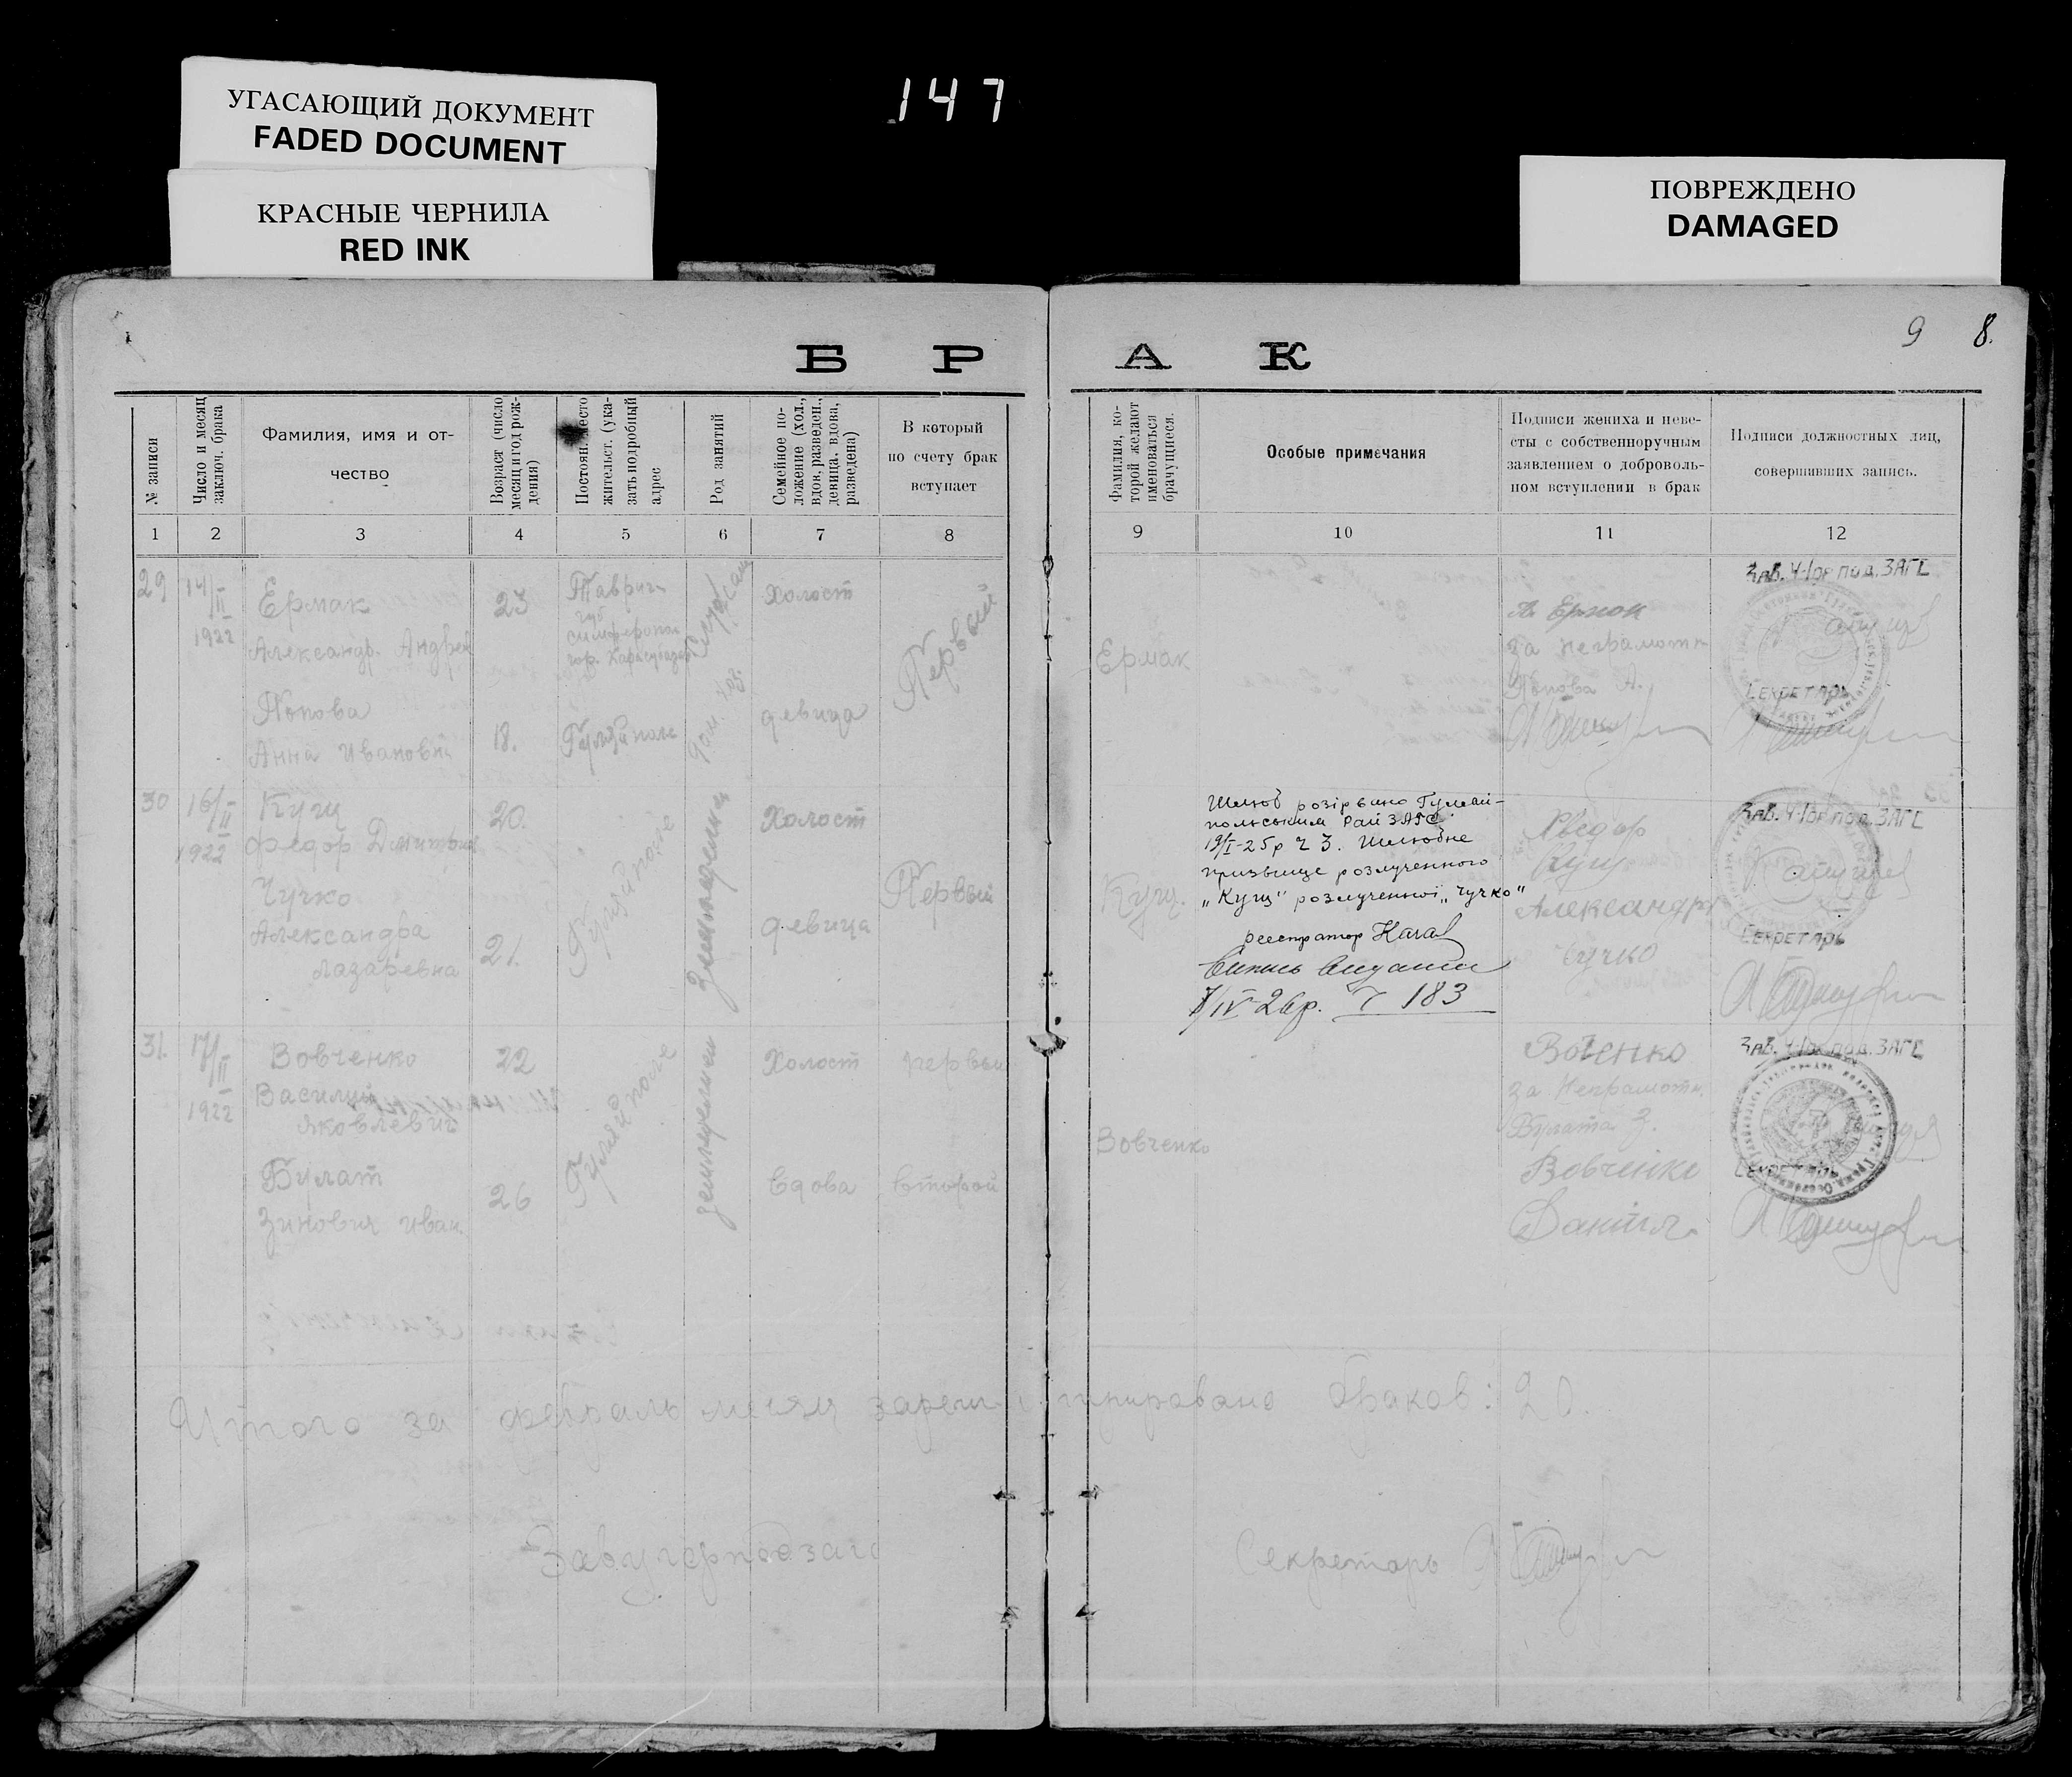 147
УГАСАЮЩИЙ ДОКУМЕНТ
FADED DOCUMENT
КРАСНЫЕ ЧЕРНИЛА
RED INK
ПОВРЕЖДЕНО
DAMAGED
9 8.
БРАК
№ записи
Число и месяц
заключ. брака
Фамилия, имя и от-
чество
Возраст (число
месяц и год рож-
дения)
Постоян. место
жительст. (ука-
зать подробный
адрес
Род занятий
Семейное по-
ложение (хол.,
вдов, разведен.,
девица, вдова,
разведена)
В который
по счету брак
вступает
Фамилия, ко-
торой желают
именоваться
брачущиеся.
Особые примечания
Подписи жениха и неве-
сты с собственноручным
заявлением о доброволь-
ном вступлении в брак
Подписи должностных лиц,
совершивших запись.
1 2 3 4 5 6 7 8 9 10 11 12
29
14/II
1922
Ермак
Александр Андрей
23
Таврич
губ
гор. Карасубазар
Холост
Первый
Попова
Анна Ивановн
18.
Гуляйполе
девица
Ермак
А. Ермак
за неграмотн
Попова А.
Зав. Ч-Гор под. ЗАГС
Секретарь
30
16/II
1922
Кущ
Федор Дмитрие
20.
Гуляйполе
Земледелец
Холост
Первый
Чучко
Александра
Лазаревна
21.
девица
Кущ.
Шлюб розірвано Гуляй-
польським Рай ЗАГС
19/I-25р Ч 3. Шлюбне
призвище розлученного
„Кущ" розлученної „Чучко"
реєстратор
Випись видана
7/IV-26р. Ч 183
Федор
Кущ
Александра
Чучко
Зав. Ч-Гор под. ЗАГС
Секретарь
31.
17/II
1922
Вовченко
Василий
Яковлевич
22
Гуляйполе
земледелец
Холост
первый
Булат
Зинович Иван.
26
вдова
второй
Вовченко
за Неграмотн.
Булат З.
Вовченко
Данил
Зав. Ч-Гор под. ЗАГС
Секретарь
Итого за февраль месяц зарегистрировано браков: 20.
Секретарь